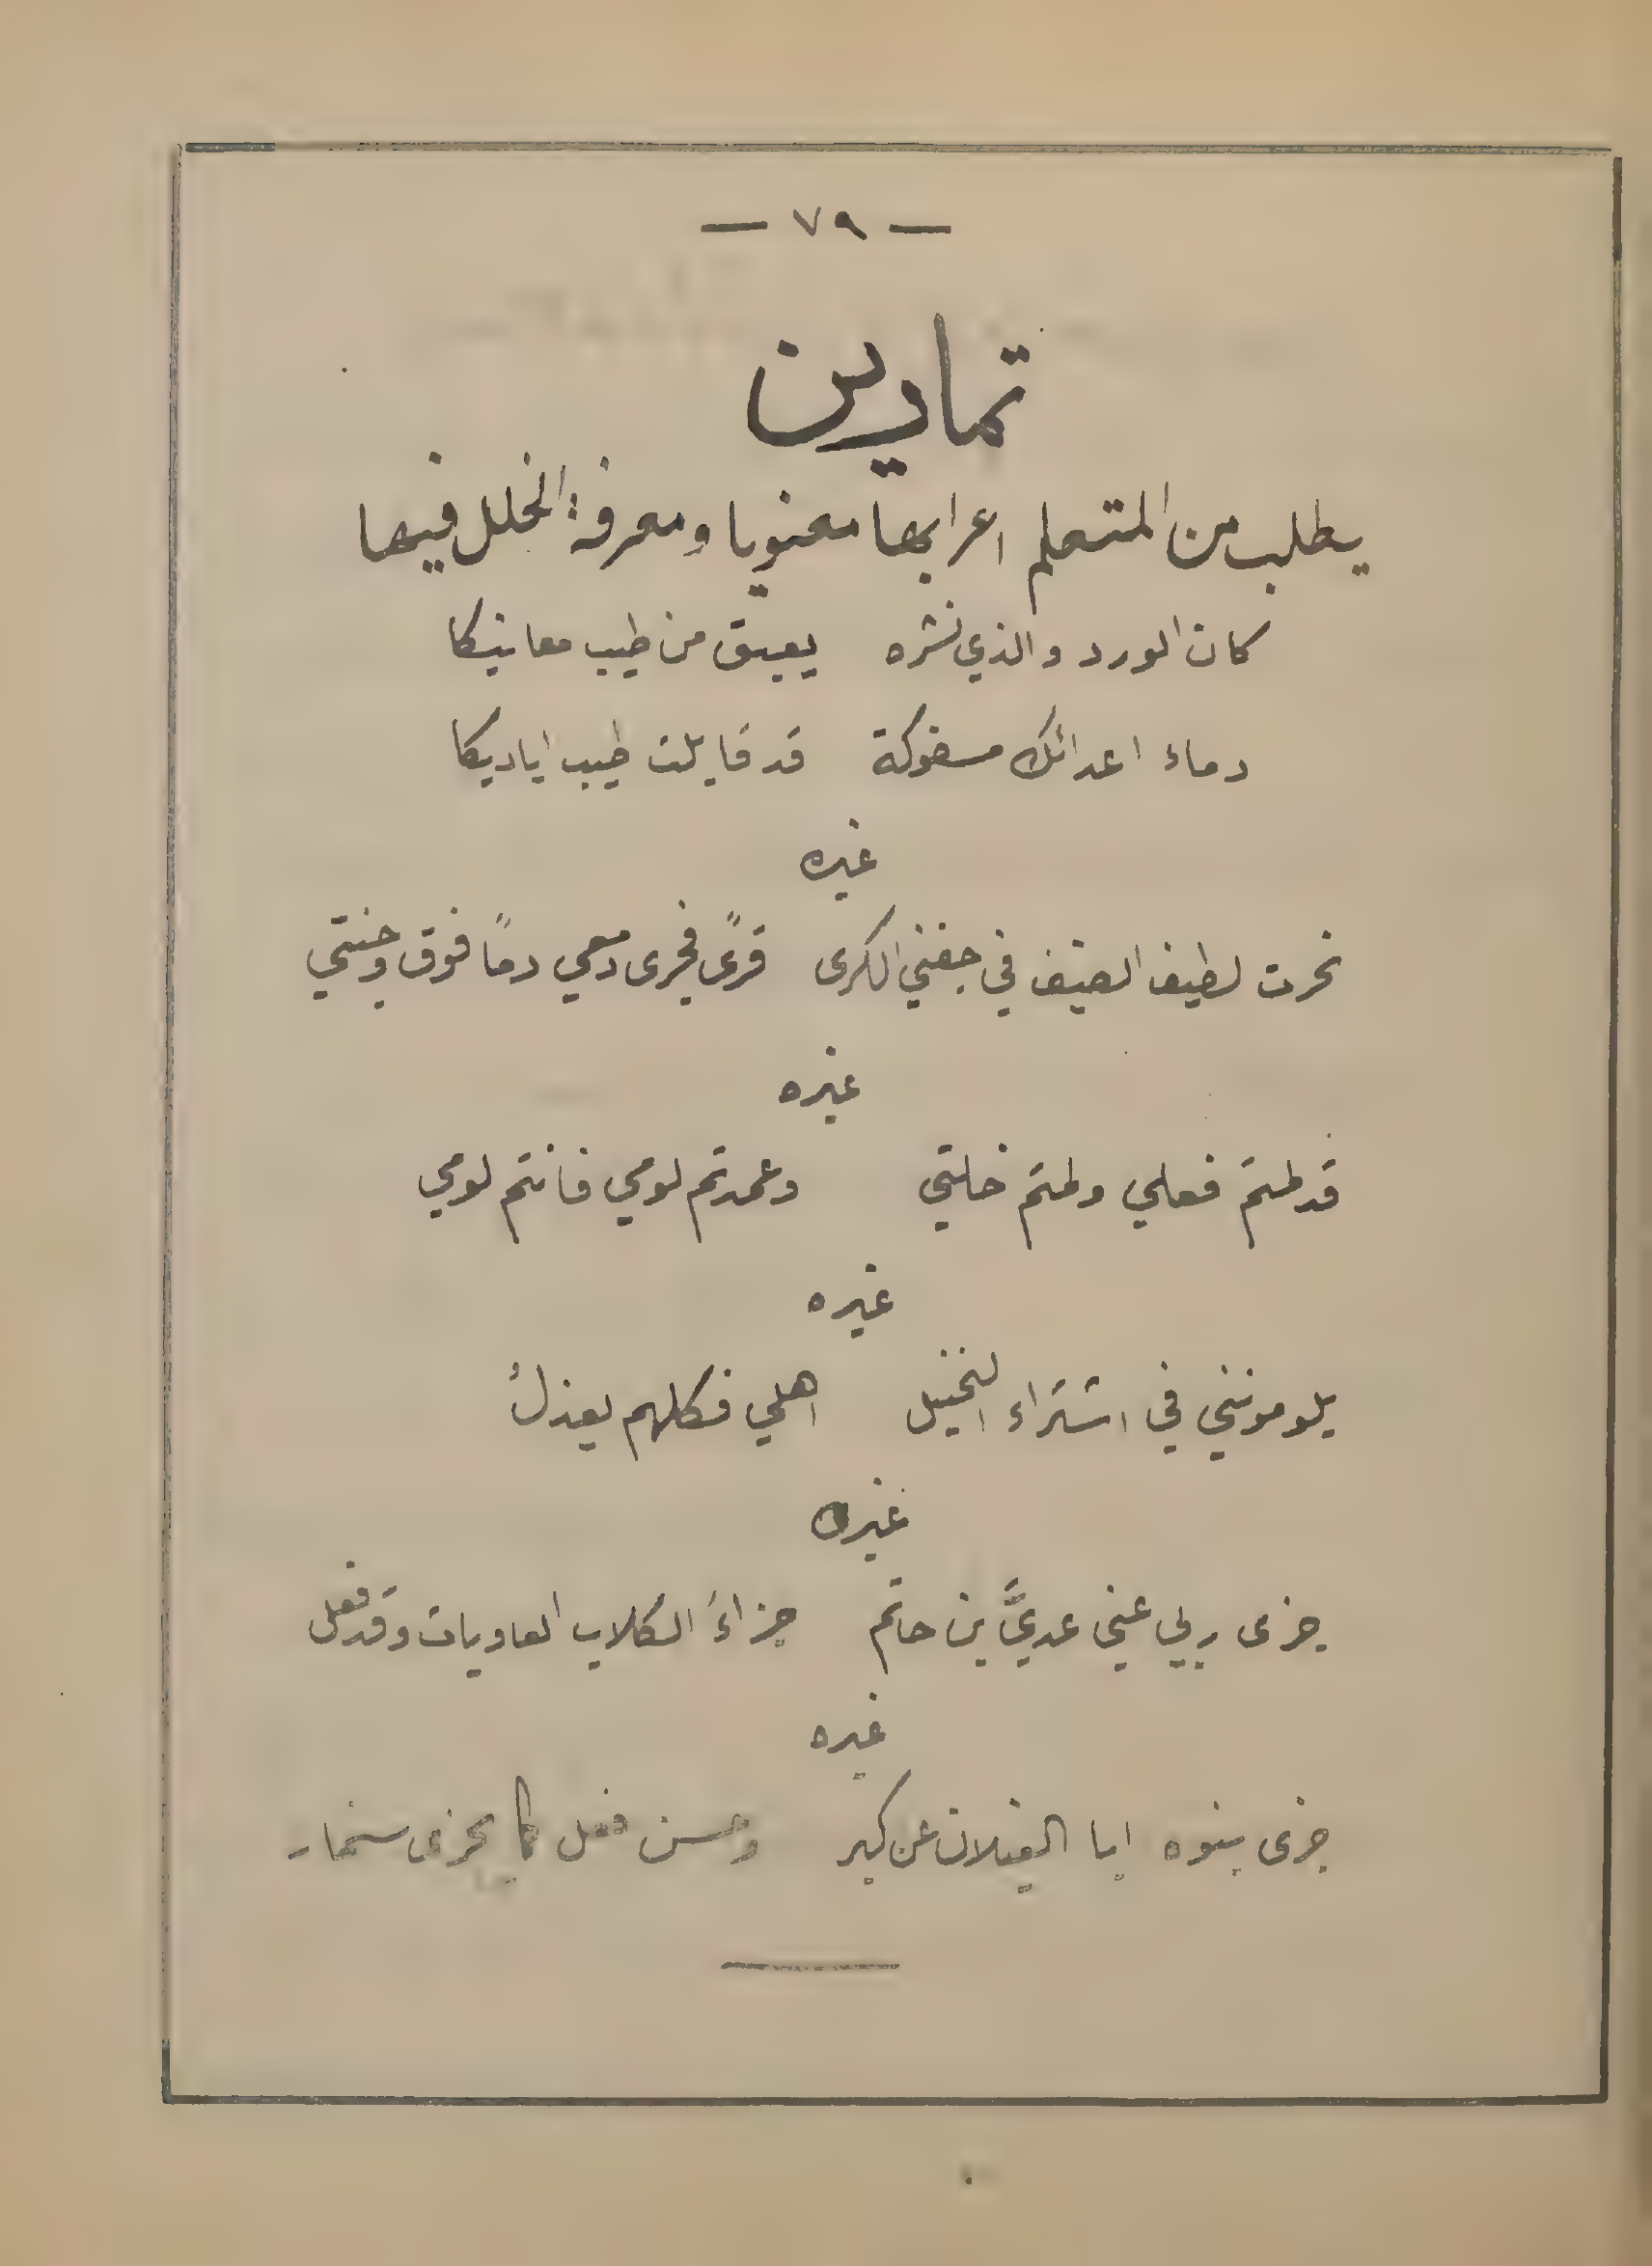 — ٧٩ —
تمارين
يطلب من المتعلم اعرابها معنويا ومعرفة الخلل فيها
كان الورد والذي نشره يعبق من طيب معانيكا
دماء اعدائك مسفوكة قد قابلت طيب اياديكا
غيره
نحرت لطيف الضيف في جفني الكرى قرًى فجرى دمعي دمًا فوق وجنتي
غيره
قد لمتم فعلي ولمتم خلتي وعمدتم لومي فانتم لومي
غيره
يلومونني في اشتراء النخيل اهلي فكلهم يعذلُ
غيره
جزى ربي عني عديَّ بن حاتم جزاءَ الكلاب العاويات وقد فعل
غيره
جزى بنوه ابا الغيلان عن كبر وحسن فعل كما يجزى سنمار